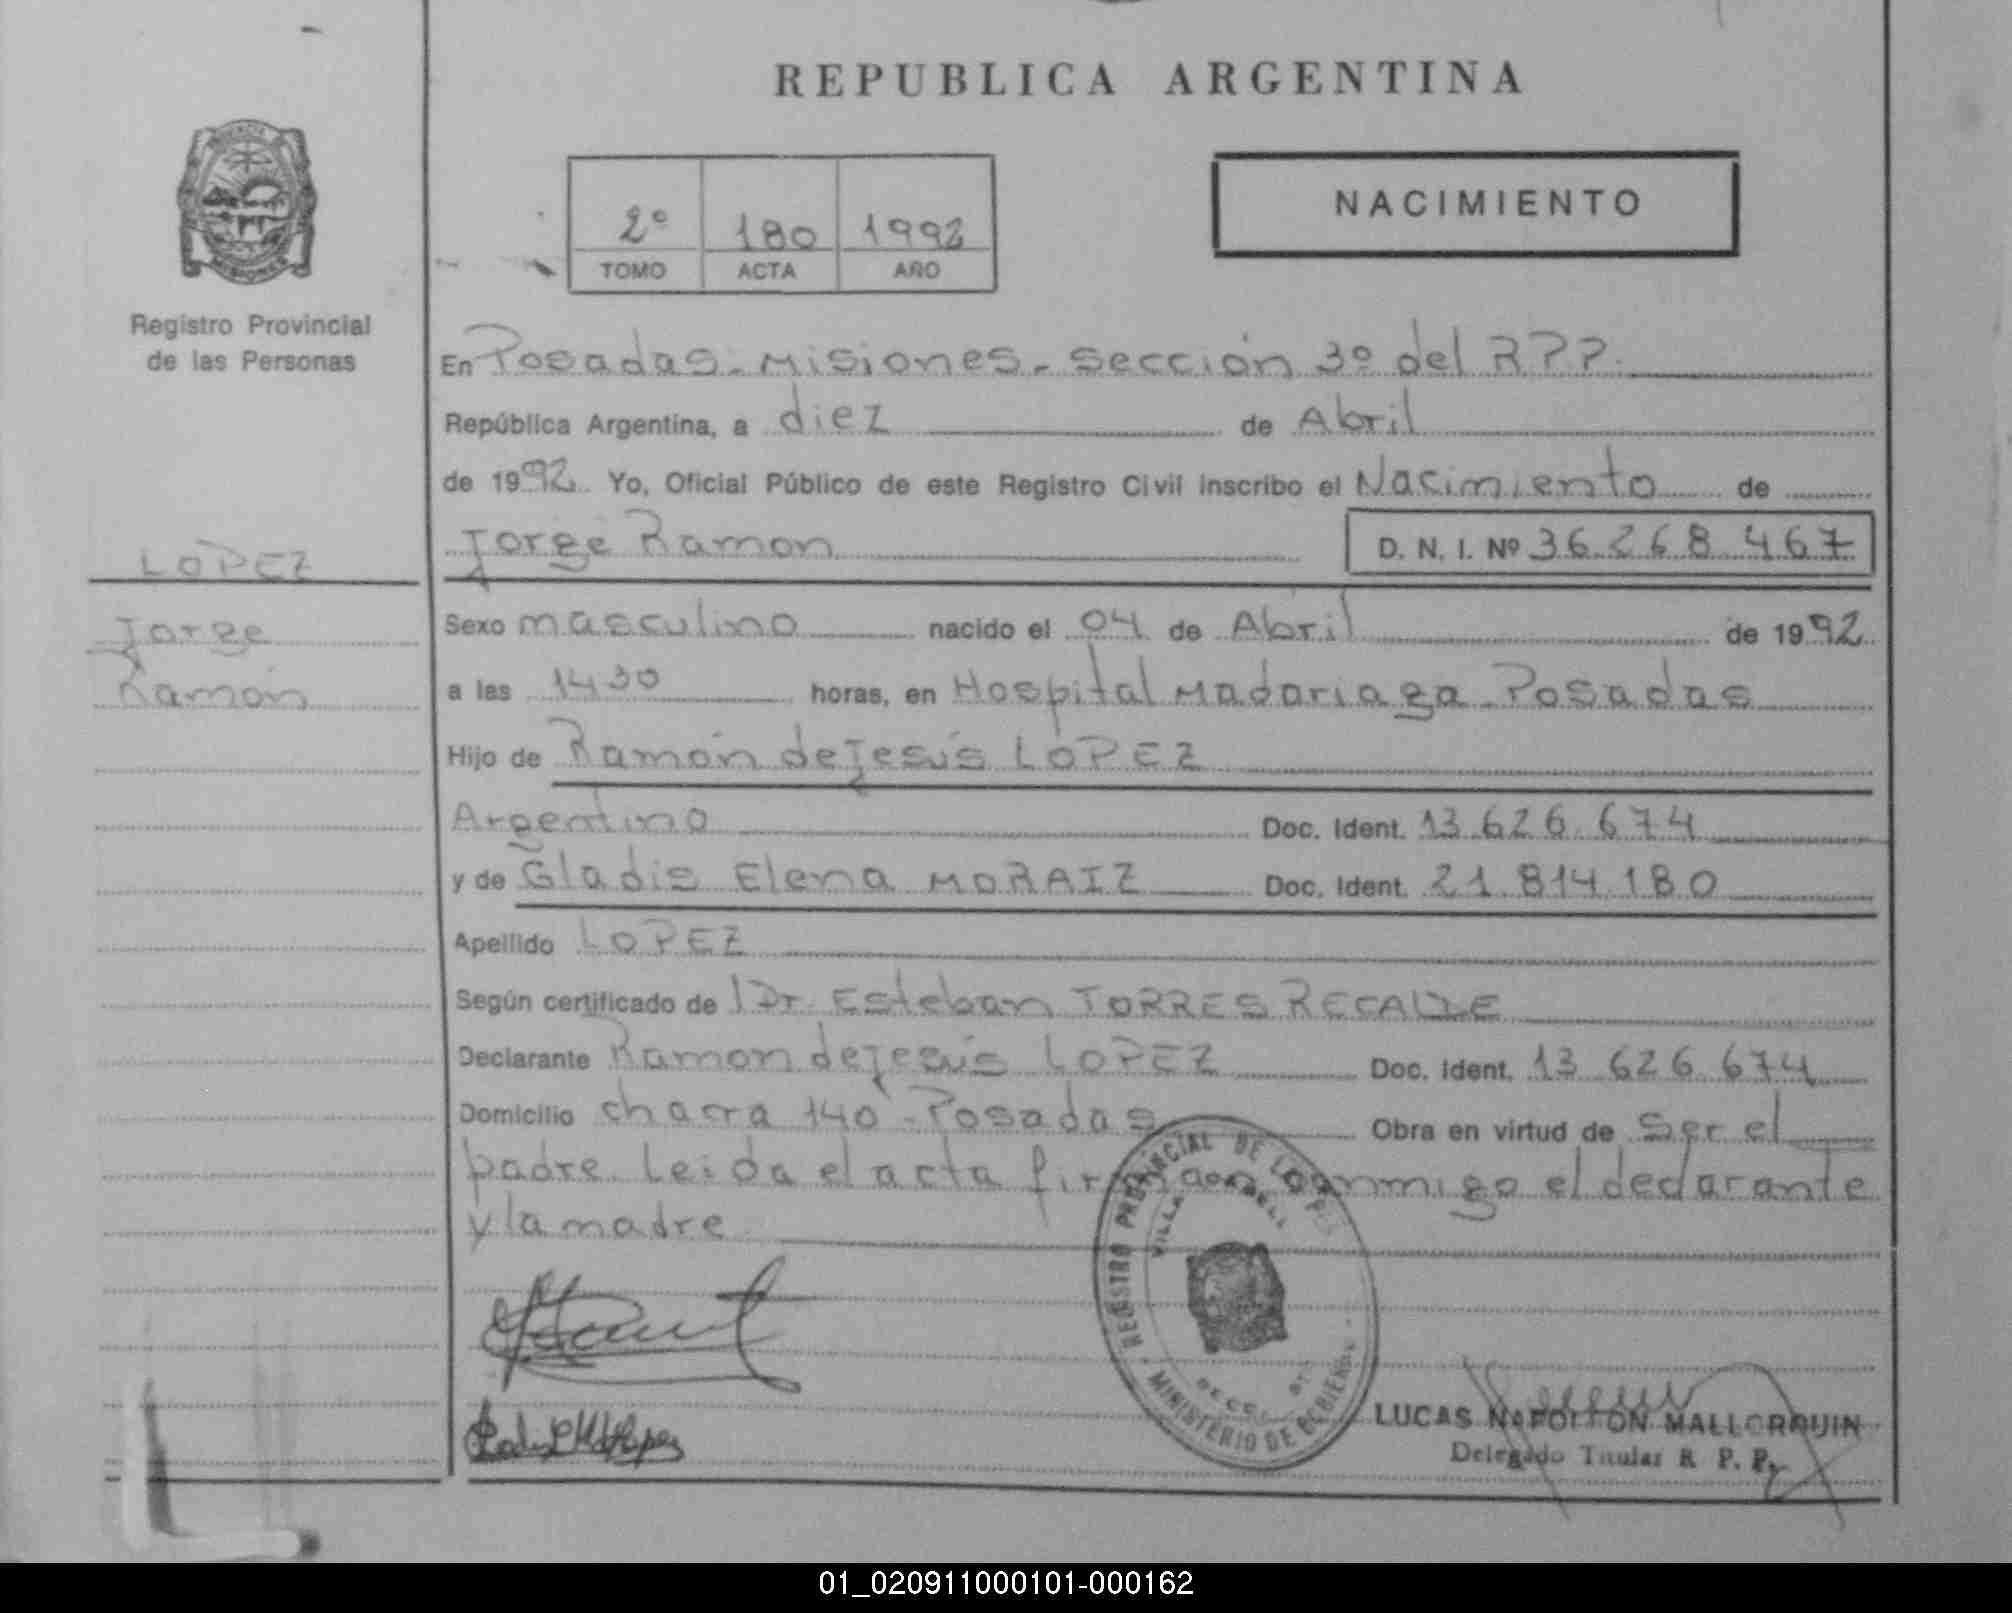 REPUBLICA ARGENTINA
NACIMIENTO
2º 180 1992
TOMO ACTA AÑO
MISIONES
Registro Provincial
de las Personas
En Posadas - Misiones - sección 3º del RPP.
República Argentina, a diez de Abril
de 1992. Yo, Oficial Público de este Registro Civil inscribo el Nacimiento de
Jorge Ramon D. N. I. Nº 36.268.467
LOPEZ
Jorge
Ramón
Sexo masculino nacido el 04 de Abril de 1992
a las 14 30 horas, en Hospital Madariaga - Posadas
Hijo de Ramón de Jesús LOPEZ
Argentino Doc. Ident. 13.626.674
y de Gladis Elena MORAIZ Doc. Ident. 21.814.180
Apellido LOPEZ
Según certificado de Dr. Esteban TORRES RECALDE
Declarante Ramon de Jesús LOPEZ Doc. Ident. 13.626.674
Domicilio chacra 140 - Posadas Obra en virtud de ser el
padre. Leida el acta firman conmigo el declarante
y la madre
REGISTRO PROVINCIAL DE LAS
VILLA
MINISTERIO DE GOBIERNO
LUCAS NAPOLEON MALLORQUIN
Delegado Titular R. P. P.
01_020911000101-000162